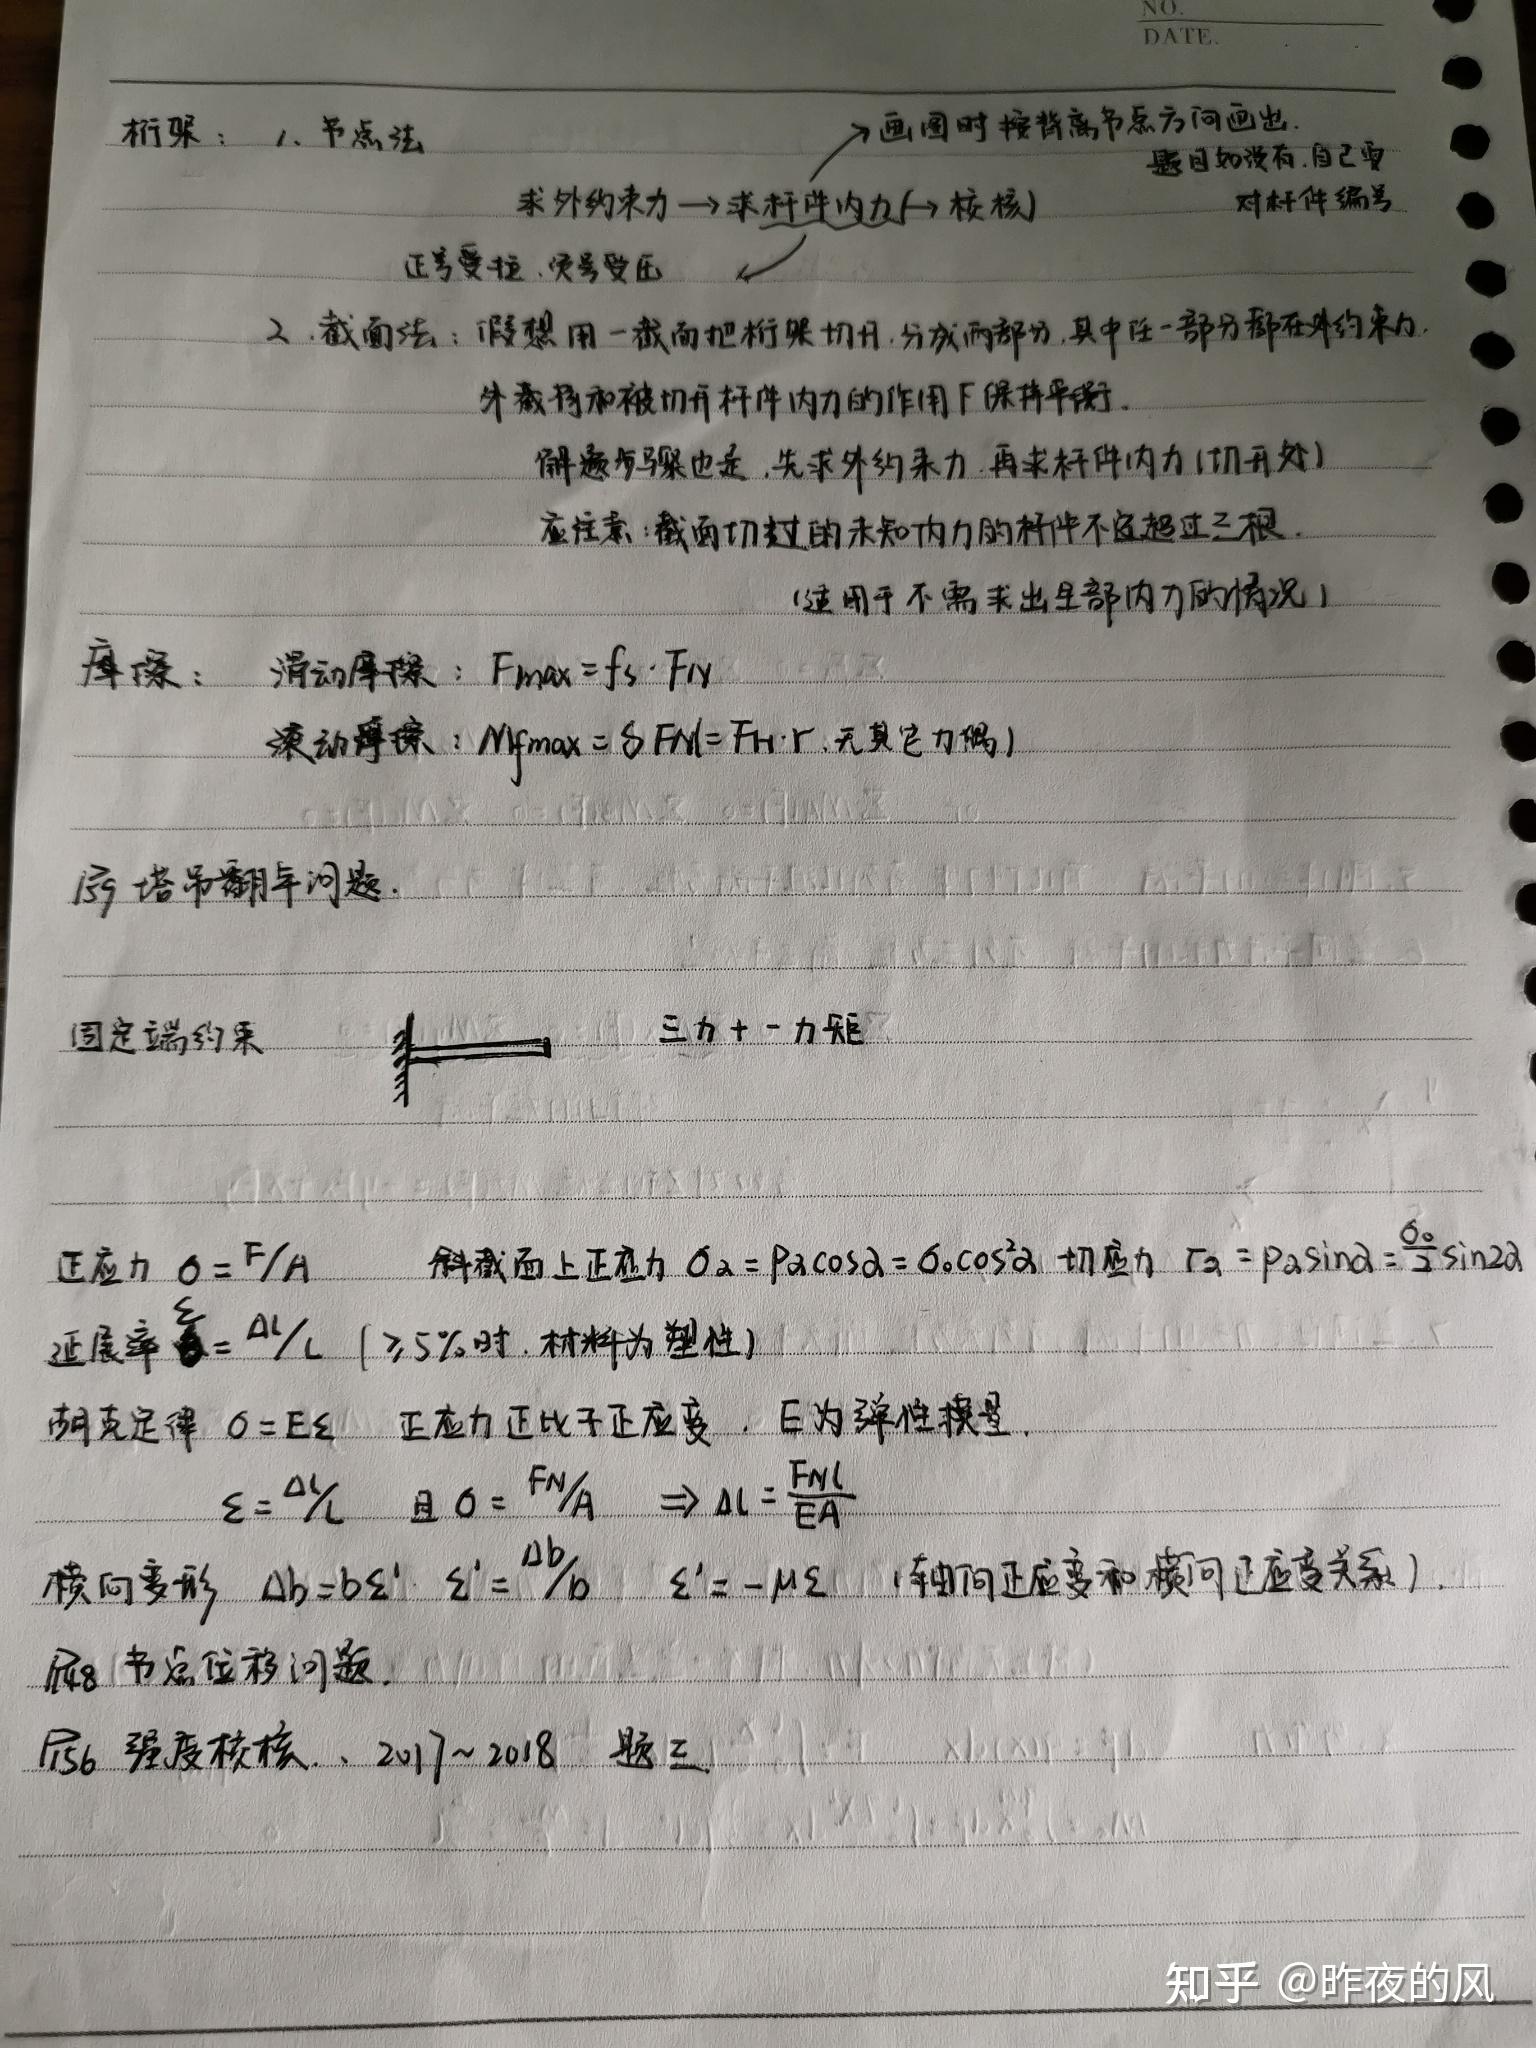 NO.
DATE.
桁架： 1、节点法
画图时按背离节点方向画出.
题目如没有,自己要
对杆件编号
求外约束力→求杆件内力(→校核)
正号受拉、负号受压
2.截面法：假想用一截面把桁架切开,分成两部分,其中任一部分都在外约束力.
外载荷和被切开杆件内力的作用下保持平衡.
解题步骤也是,先求外约束力,再求杆件内力(切开处)
应注意:截面切过的未知内力的杆件不宜超过三根.
(适用于不需求出全部内力的情况)
摩擦： 滑动摩擦：Fmax=fs·FN
滚动摩擦：Mfmax=δFN(=FH·r,无其它力偶)
P59 塔吊翻车问题.
固定端约束 三力+一力矩
正应力 σ=F/A 斜截面上正应力 σα=pαcosα=σ₀cos²α 切应力 τα=pαsinα=σ₀/2 sin2α
延展率 ε=Δl/L (≥5%时,材料为塑性)
胡克定律 σ=Eε 正应力正比于正应变,E为弹性模量.
ε=Δl/L 且σ=FN/A ⇒Δl=FNl/EA
横向变形 Δb=bε' ε'=Δb/b ε'=-με (轴向正应变和横向正应变关系).
P148 节点位移问题.
P156 强度校核.、2017~2018 题三.
知乎 @昨夜的风